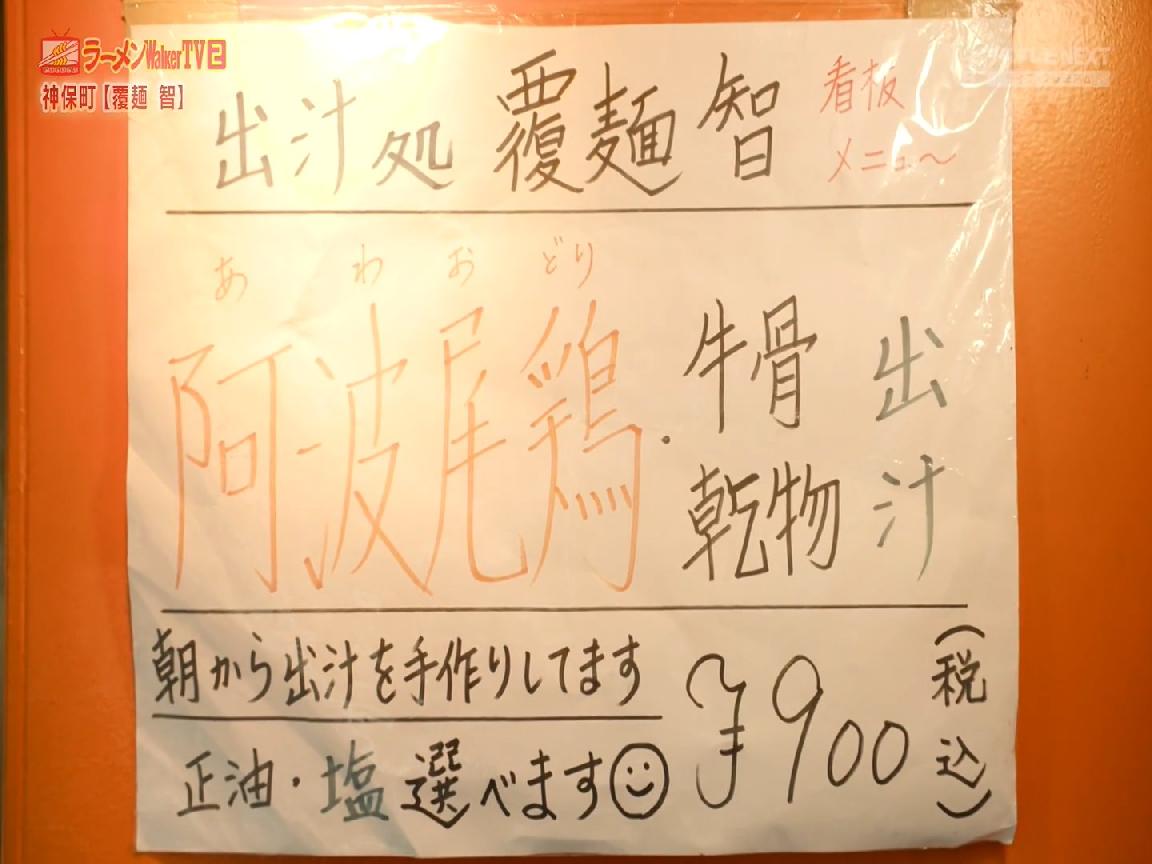 ラーメンWalkerTV2
神保町【覆麺 智】
出汁処 覆麺 智
看板
メニュ〜
あわおどり
阿波尾鶏・
牛骨
乾物
出汁
朝から出汁を手作りしてます
正油・塩選べます
¥900
(税込)